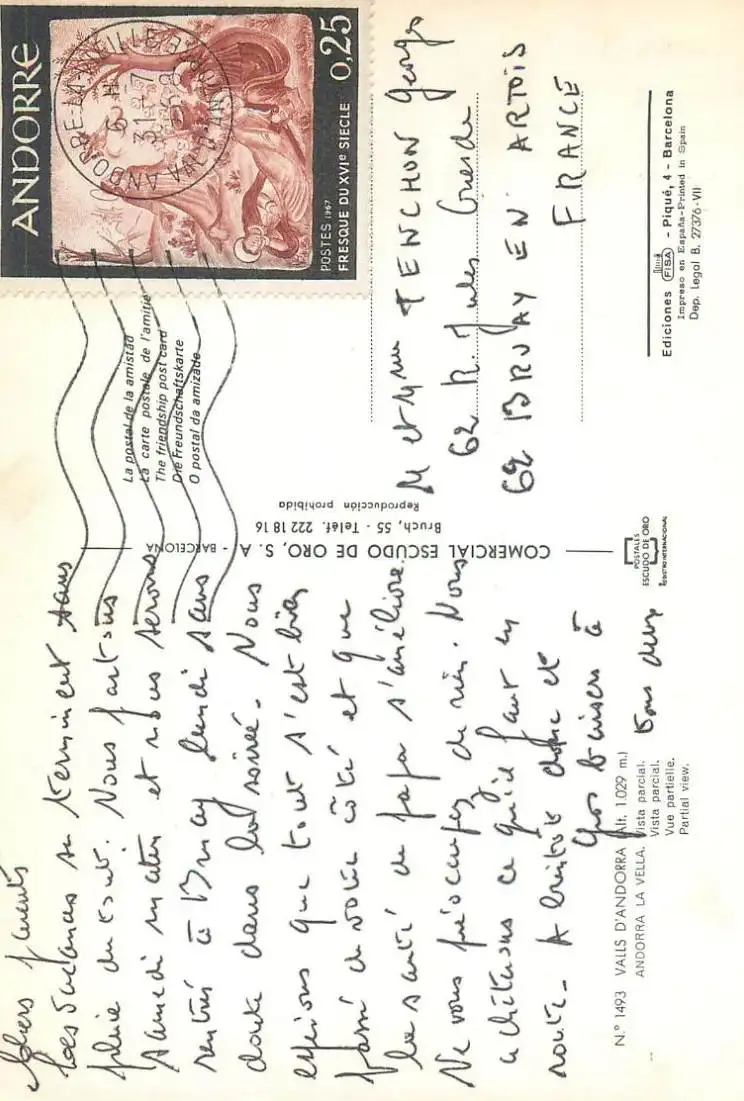 Chers parents
Les vacances se terminent sans
pluie du tout. Nous partons
samedi matin et nous serons
rentrés à Bruay lundi sans
doute dans la soirée. Nous
espérons que tout s'est bien
passé de votre côté et que
la santé de papa s'améliore.
Ne vous préoccupez de rien. Nous
achèterons ce qu'il faut en
route. A bientôt donc et
Gros baisers à
tous deux
N.º 1493 VALLS D'ANDORRA (Alt. 1.029 m.)
ANDORRA LA VELLA. Vista parcial.
Vista parcial.
Vue partielle.
Partial view.
COMERCIAL ESCUDO DE ORO, S. A. - BARCELONA
Bruch, 55 - Teléf. 222 18 16
Reproducción prohibida
POSTALES
ESCUDO DE ORO
REGISTRO INTERNACIONAL
La postal de la amistad
La carte postale de l'amitié
The friendship post card
Die Freundschaftskarte
O postal da amizade
ANDORRE
0,25
POSTES 1967
FRESQUE DU XVIe SIECLE
ANDORRE-LA-VIEILLE
6 H
31-7
VAL D'ANDORRE
M et Mme TENCHON Georges
62 R. Jules Guesde
62 BRUAY EN ARTOIS
FRANCE
Ediciones FISA - Piqué, 4 - Barcelona
Impreso en España-Printed in Spain
Dep. Legal B. 27376-VII